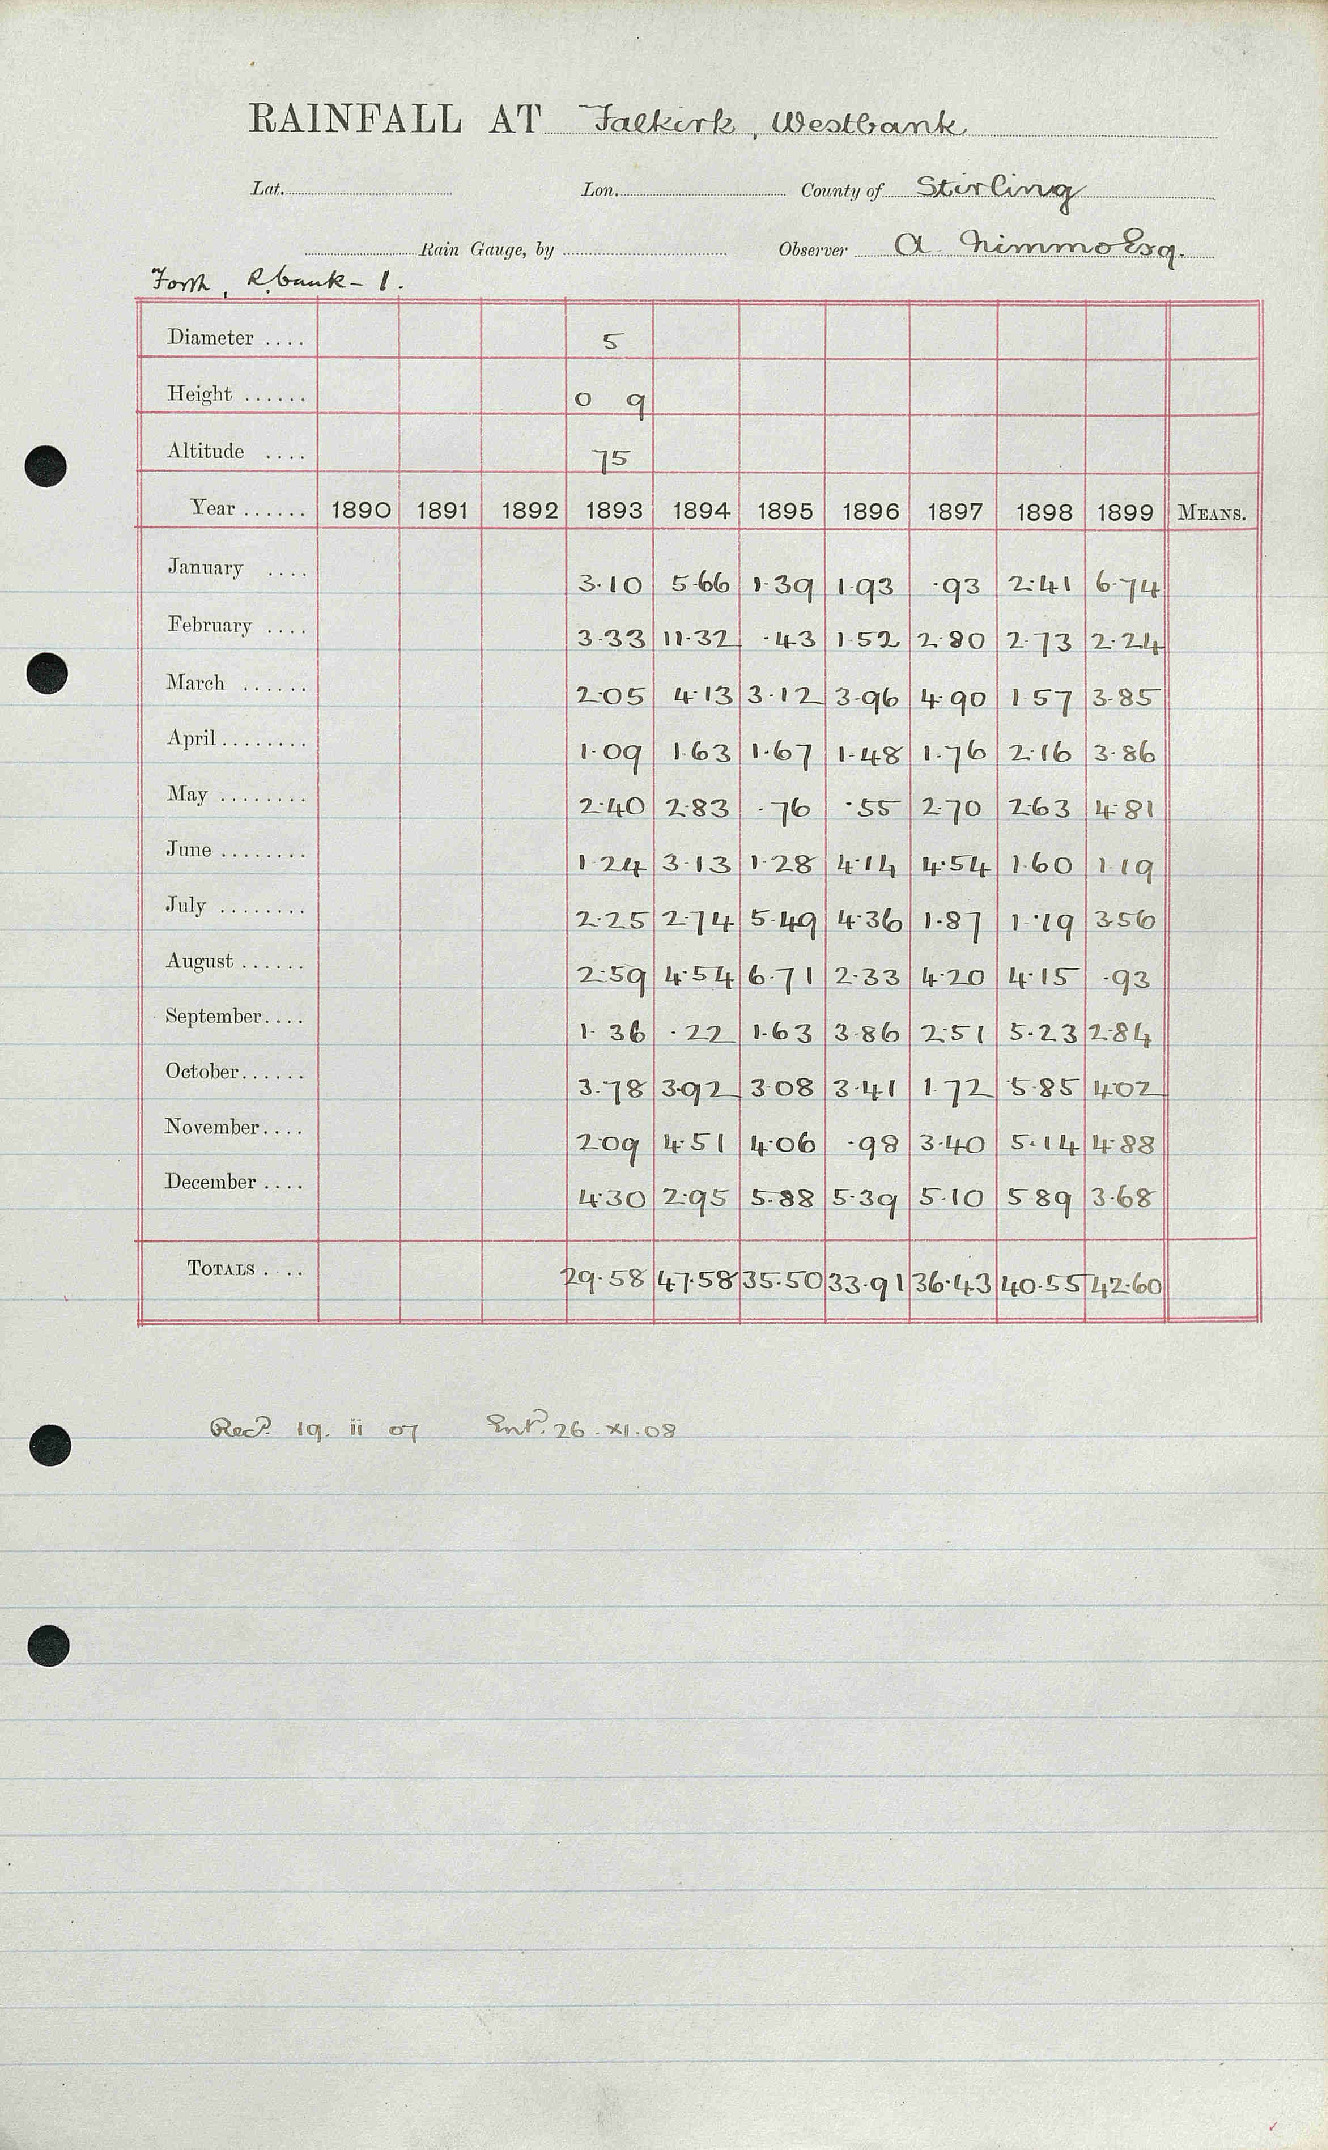 RAINFALL AT Falkirk, Westbank
Lat. Lon. County of Stirling
Rain Gauge, by Observer A. Nimmo Esq.
Forth, R. bank - 1.
Diameter .... 5
Height ...... 0 9
Altitude .... 75
Year ...... 1890 1891 1892 1893 1894 1895 1896 1897 1898 1899 MEANS.
January .... 3.10 5.66 1.39 1.93 .93 2.41 6.74
February .... 3.33 11.32 .43 1.52 2.80 2.73 2.24
March ...... 2.05 4.13 3.12 3.96 4.90 1.57 3.85
April ........ 1.09 1.63 1.67 1.48 1.76 2.16 3.86
May ........ 2.40 2.83 .76 .55 2.70 2.63 4.81
June ........ 1.24 3.13 1.28 4.14 4.54 1.60 1.19
July ........ 2.25 2.74 5.49 4.36 1.87 1.19 3.56
August ...... 2.59 4.54 6.71 2.33 4.20 4.15 .93
September.... 1.36 .22 1.63 3.86 2.51 5.23 2.84
October...... 3.78 3.92 3.08 3.41 1.72 5.85 4.02
November.... 2.09 4.51 4.06 .98 3.40 5.14 4.88
December .... 4.30 2.95 5.88 5.39 5.10 5.89 3.68
TOTALS .... 29.58 47.58 35.50 33.91 36.43 40.55 42.60
Recd. 19. ii 07 Entd. 26. XI. 08